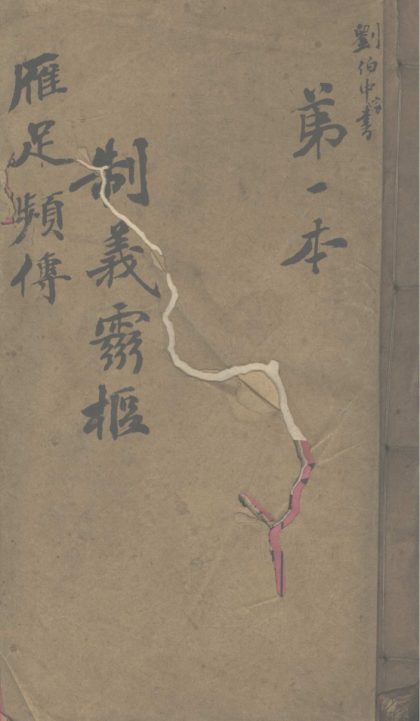 劉伯中書
第一本
制義靈樞
雁足頻傳